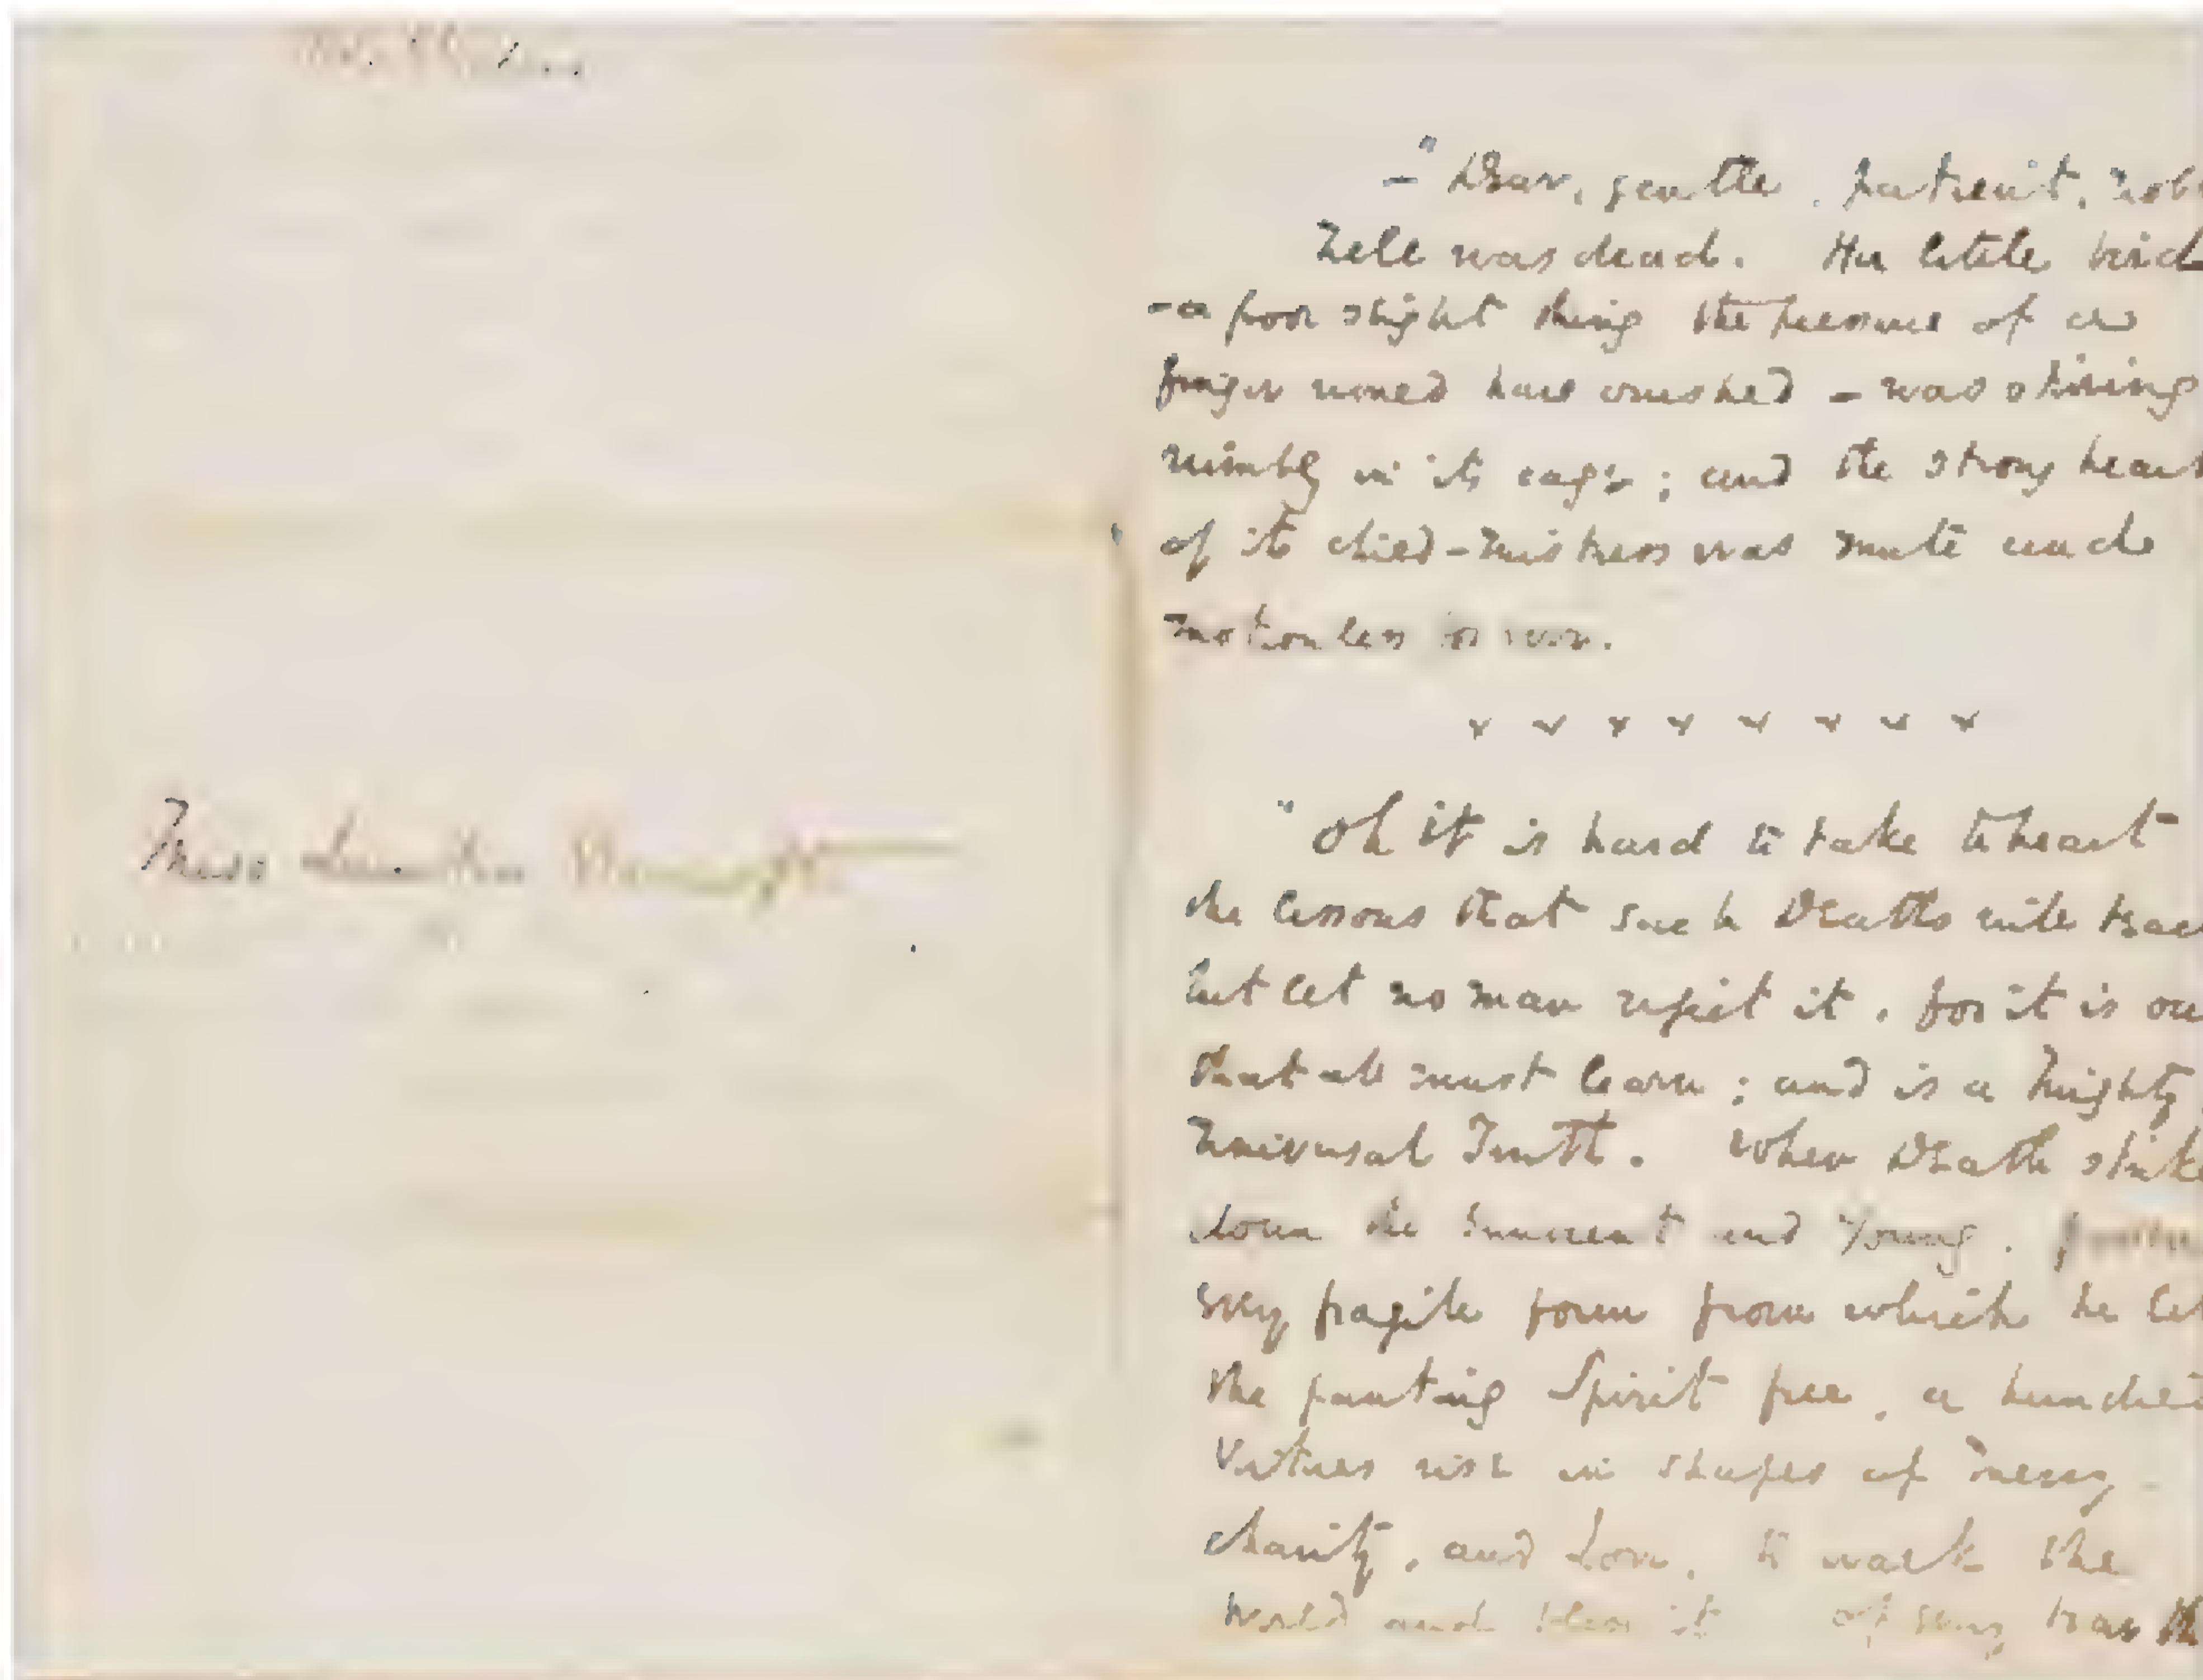 —"Dear, gentle, patient, nob
Nell was dead. Her little bird
—a poor slight thing the pressure of a
finger would have crushed — was stirring
nimbly in its cage; and the strong heart
of its child-mistress was mute and
motionless for ever.
x x x x x x x x
"Oh it is hard to take to heart
the lessons that such Deaths will teac
but let no man reject it, for it is on
that all must learn; and is a mighty,
Universal Truth. When Death strike
down the Innocent and Young,
every fragile form from which he let
the panting Spirit free, a hundred
Virtues rise in shapes of Mercy,
charity, and Love, to walk the
World and bless it. Of every tear th
Miss